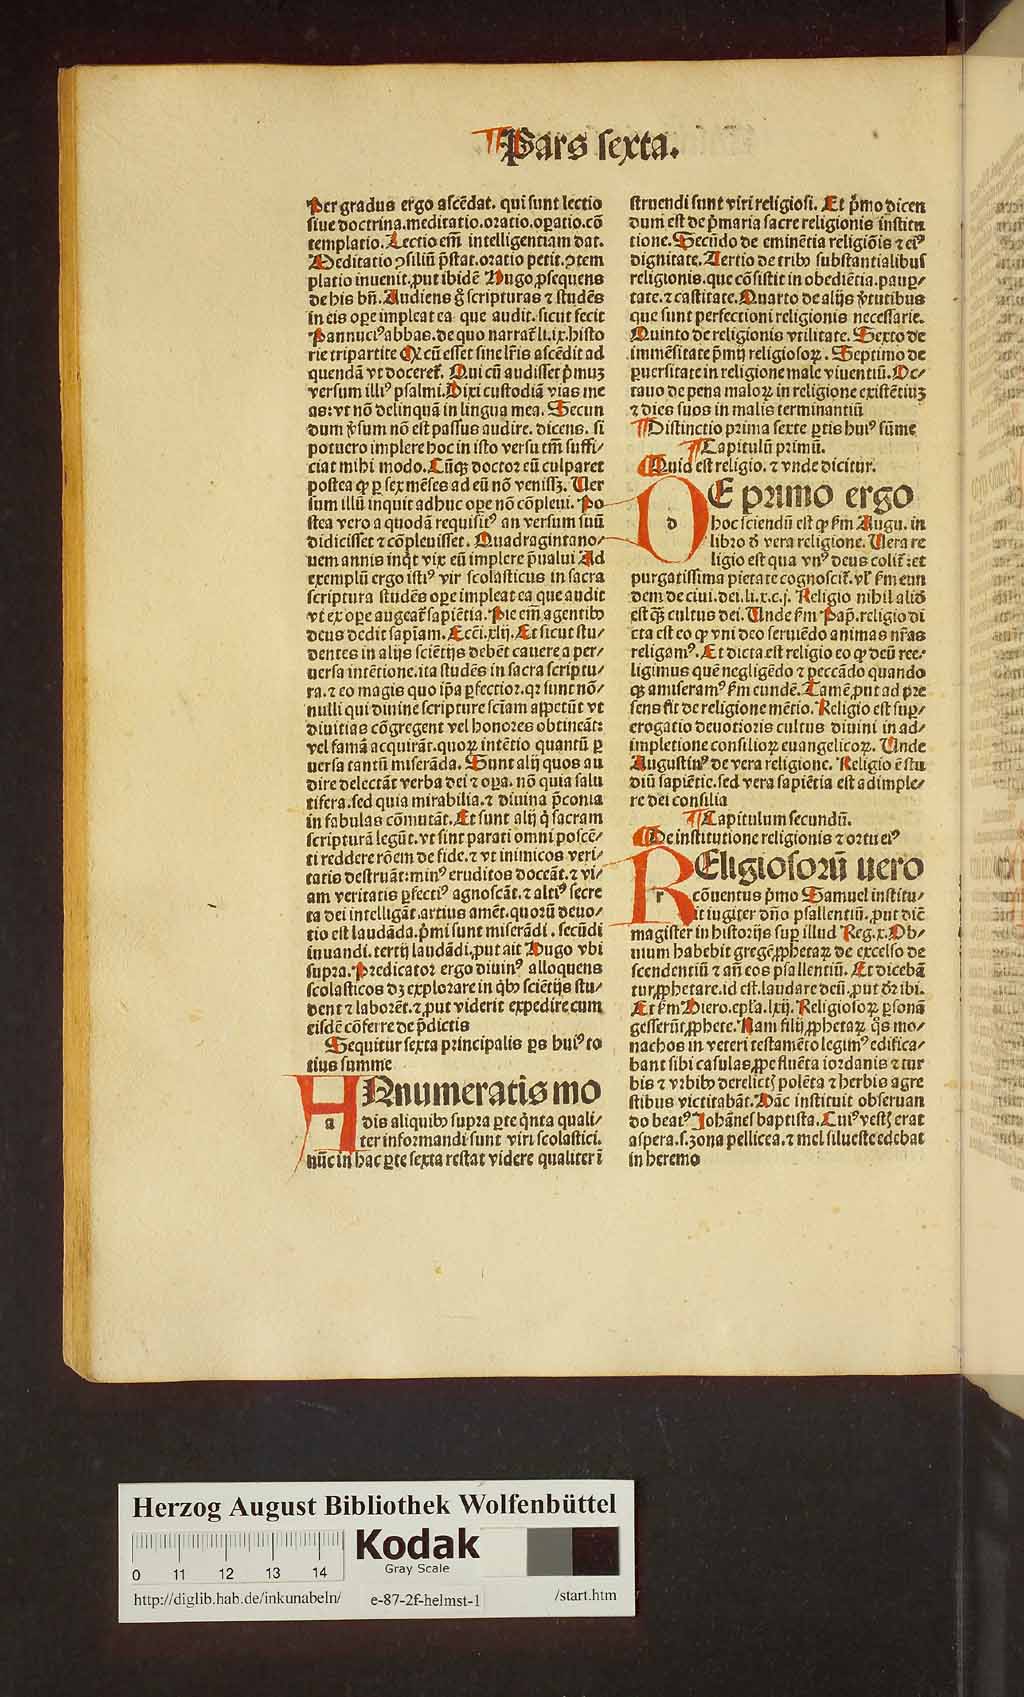 Pars sexta.
Per gradus ergo ascēdat. qui sunt lectio
siue doctrina. meditatio. oratio. oꝑatio. cō
templatio. Lectio em̄ intelligentiam dat.
Meditatio ꝯsiliū p̄stat. oratio petit. ꝯtem
platio inuenit. ꝓut ibidē Hugo. ꝓsequens
de his bn̄. Audiens g̊ scripturas ⁊ studēs
in eis oꝑe impleat ea que audit. sicut fecit
Pannuciꝰ abbas. de quo narrat᷑ li. ix. histo
rie tripartite Qꝛ cū esset sine lr̄is ascēdit ad
quendā vt doceret᷑. Qui cū audisset p̄muꝫ
versum illiꝰ psalmi. Dixi custodiā vias me
as: vt nō delinquā in lingua mea. Secun
dum v̓sum nō est passus audire. dicens. si
potuero implere hoc in isto versu tm̄ suffi⸗
ciat mihi modo. Cūqꝫ doctor eū culparet
postea ꝙ ꝑ sex mēses ad eū nō venissꝫ. Uer
sum illū inquit adhuc oꝑe nō cōpleui. Po
stea vero a quodā requisitꝰ an versum suū
didicisset ⁊ cōpleuisset. Quadragintano⸗
uem annis inq̇t vix eū implere p̄ualui Ad
exemplū ergo istiꝰ vir scolasticus in sacra
scriptura studēs oꝑe impleat ea que audit
vt ex oꝑe augeat᷑ sapiētia. Pie em̄ agentibꝰ
deus dedit sapīam. Ecc̄i. xliij. Et sicut stu⸗
dentes in alijs sciētijs debēt cauere a per⸗
uersa intētione. ita studēs in sacra scriptu⸗
ra. ⁊ eo magis quo ip̄a ꝑfectior. qꝛ sunt nō⸗
nulli qui diuine scripture sc̄iam appetūt vt
diuitias cōgregent vel honores obtineāt:
vel famā acquirāt. quoꝝ intētio quantū ꝑ
uersa tantū miserāda. Sunt alij quos au
dire delectāt verba dei ⁊ oꝑa. nō quia salu
tifera. sed quia mirabilia. ⁊ diuina p̄conia
in fabulas cōmutāt. Et sunt alij q̇ sacram
scripturā legūt. vt sint parati omni poscē⸗
ti reddere rōem de fide. ⁊ vt inimicos veri⸗
tatis destruāt: minꝰ eruditos doceāt. ⁊ vi⸗
am veritatis ꝑfectiꝰ agnoscāt. ⁊ altiꝰ secre
ta dei intelligāt. artius amēt. quorū deuo⸗
tio est laudāda. p̄mi sunt miserādi. secūdi
iuuandi. tertij laudādi. ꝓut ait Hugo vbi
supra. Predicator ergo diuinꝰ alloquens
scolasticos dꝫ explorare in q̇bꝰ sciētijs stu⸗
dent ⁊ laborēt. ⁊ ꝓut viderit expedire cum
eisdē cōferre de p̄dictis
Sequitur sexta principalis ꝑs huiꝰ to
tius summe
ANnumeratis mo
a dis aliquibꝰ supra ꝑte q̇nta quali⸗
ter informandi sunt viri scolastici.
nūc in hac ꝑte sexta restat videre qualiter ī
struendi sunt viri religiosi. Et p̄mo dicen
dum est de p̄maria sacre religionis institu
tione. Secūdo de eminētia religiōis ⁊ eiꝰ
dignitate. Tertio de tribꝰ substantialibus
religionis. que cōsistit in obediētia. pauꝑ⸗
tate. ⁊ castitate. Quarto de alijs v̓tutibus
que sunt perfectioni religionis necessarie.
Quinto de religionis vtilitate. Sexto de
immēsitate p̄mij religiosoꝝ. Septimo de
ꝑuersitate in religione male viuentiū. Oc⸗
tauo de pena maloꝝ in religione existētiuꝫ
⁊ dies suos in malis terminantiū
Distinctio prima sexte ꝑtis huiꝰ sūme
Capitulū primū.
Quid est religio. ⁊ vnde dicitur.
DE primo ergo
d hoc sciendū est ꝙ ẜm Augu. in
libro d̓ vera religione. Uera re
ligio est qua vnꝰ deus colit᷑: et
purgatissima pietate cognoscit᷑. vl᷑ ẜm eun
dem de ciui. dei. li. x. c. j. Religio nihil aliō
est qꝫ cultus dei. Unde ẜm Pap̄. religio di
cta est eo ꝙ vni deo seruiēdo animas nr̄as
religamꝰ. Et dicta est religio eo ꝙ deū ree⸗
ligimus quē negligēdo ⁊ peccādo quando
qꝫ amiseramꝰ ẜm eundē. Tamē ꝓut ad pre
sens fit de religione mētio. Religio est suꝑ⸗
erogatio deuotioris cultus diuini in ad⸗
impletione consilioꝝ euangelicoꝝ. Unde
Augustinꝰ de vera religione. Religio ē stu
diū sapiētie. sed vera sapiētia est adimple⸗
re dei consilia
Capitulum secundū.
De institutione religionis ⁊ ortu eiꝰ
REligiosorū uero
r cōuentus p̄mo Samuel institu⸗
it iugiter dn̄o psallentiū. ꝓut dic̄
magister in historijs suꝑ illud Reg. x. Ob⸗
uium habebit gregē ꝓphetaꝝ de excelso de
scendentiū ⁊ an̄ eos psallentiū. Et dicebā
tur ꝓphetare. id est. laudare deū. ꝓut dr̄ ibi.
Et ẜm Hiero. epl̄a. lxij. Religiosoꝝ ꝑsonā
gesserūt ꝓphete. Nam filij ꝓphetaꝝ q̊s mo⸗
nachos in veteri testamēto legimꝰ edifica⸗
bant sibi casulas ꝓpe fluēta iordanis ⁊ tur
bis ⁊ vrbibꝰ derelictꝭ polēta ⁊ herbis agre
stibus victitabāt. Hāc instituit obseruan
do beatꝰ Johānes baptista. Cuiꝰ vestꝭ erat
aspera. s. zona pellicea. ⁊ mel silueste edebat
in heremo
Herzog August Bibliothek Wolfenbüttel
Kodak
Gray Scale
0 11 12 13 14
http://diglib.hab.de/inkunabeln/ e-87-2f-helmst-1 /start.htm